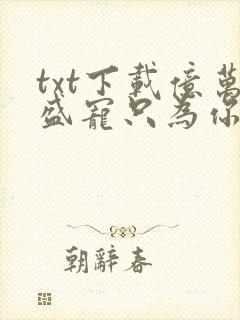 txt下載億萬
盛寵只為你
朝辭春